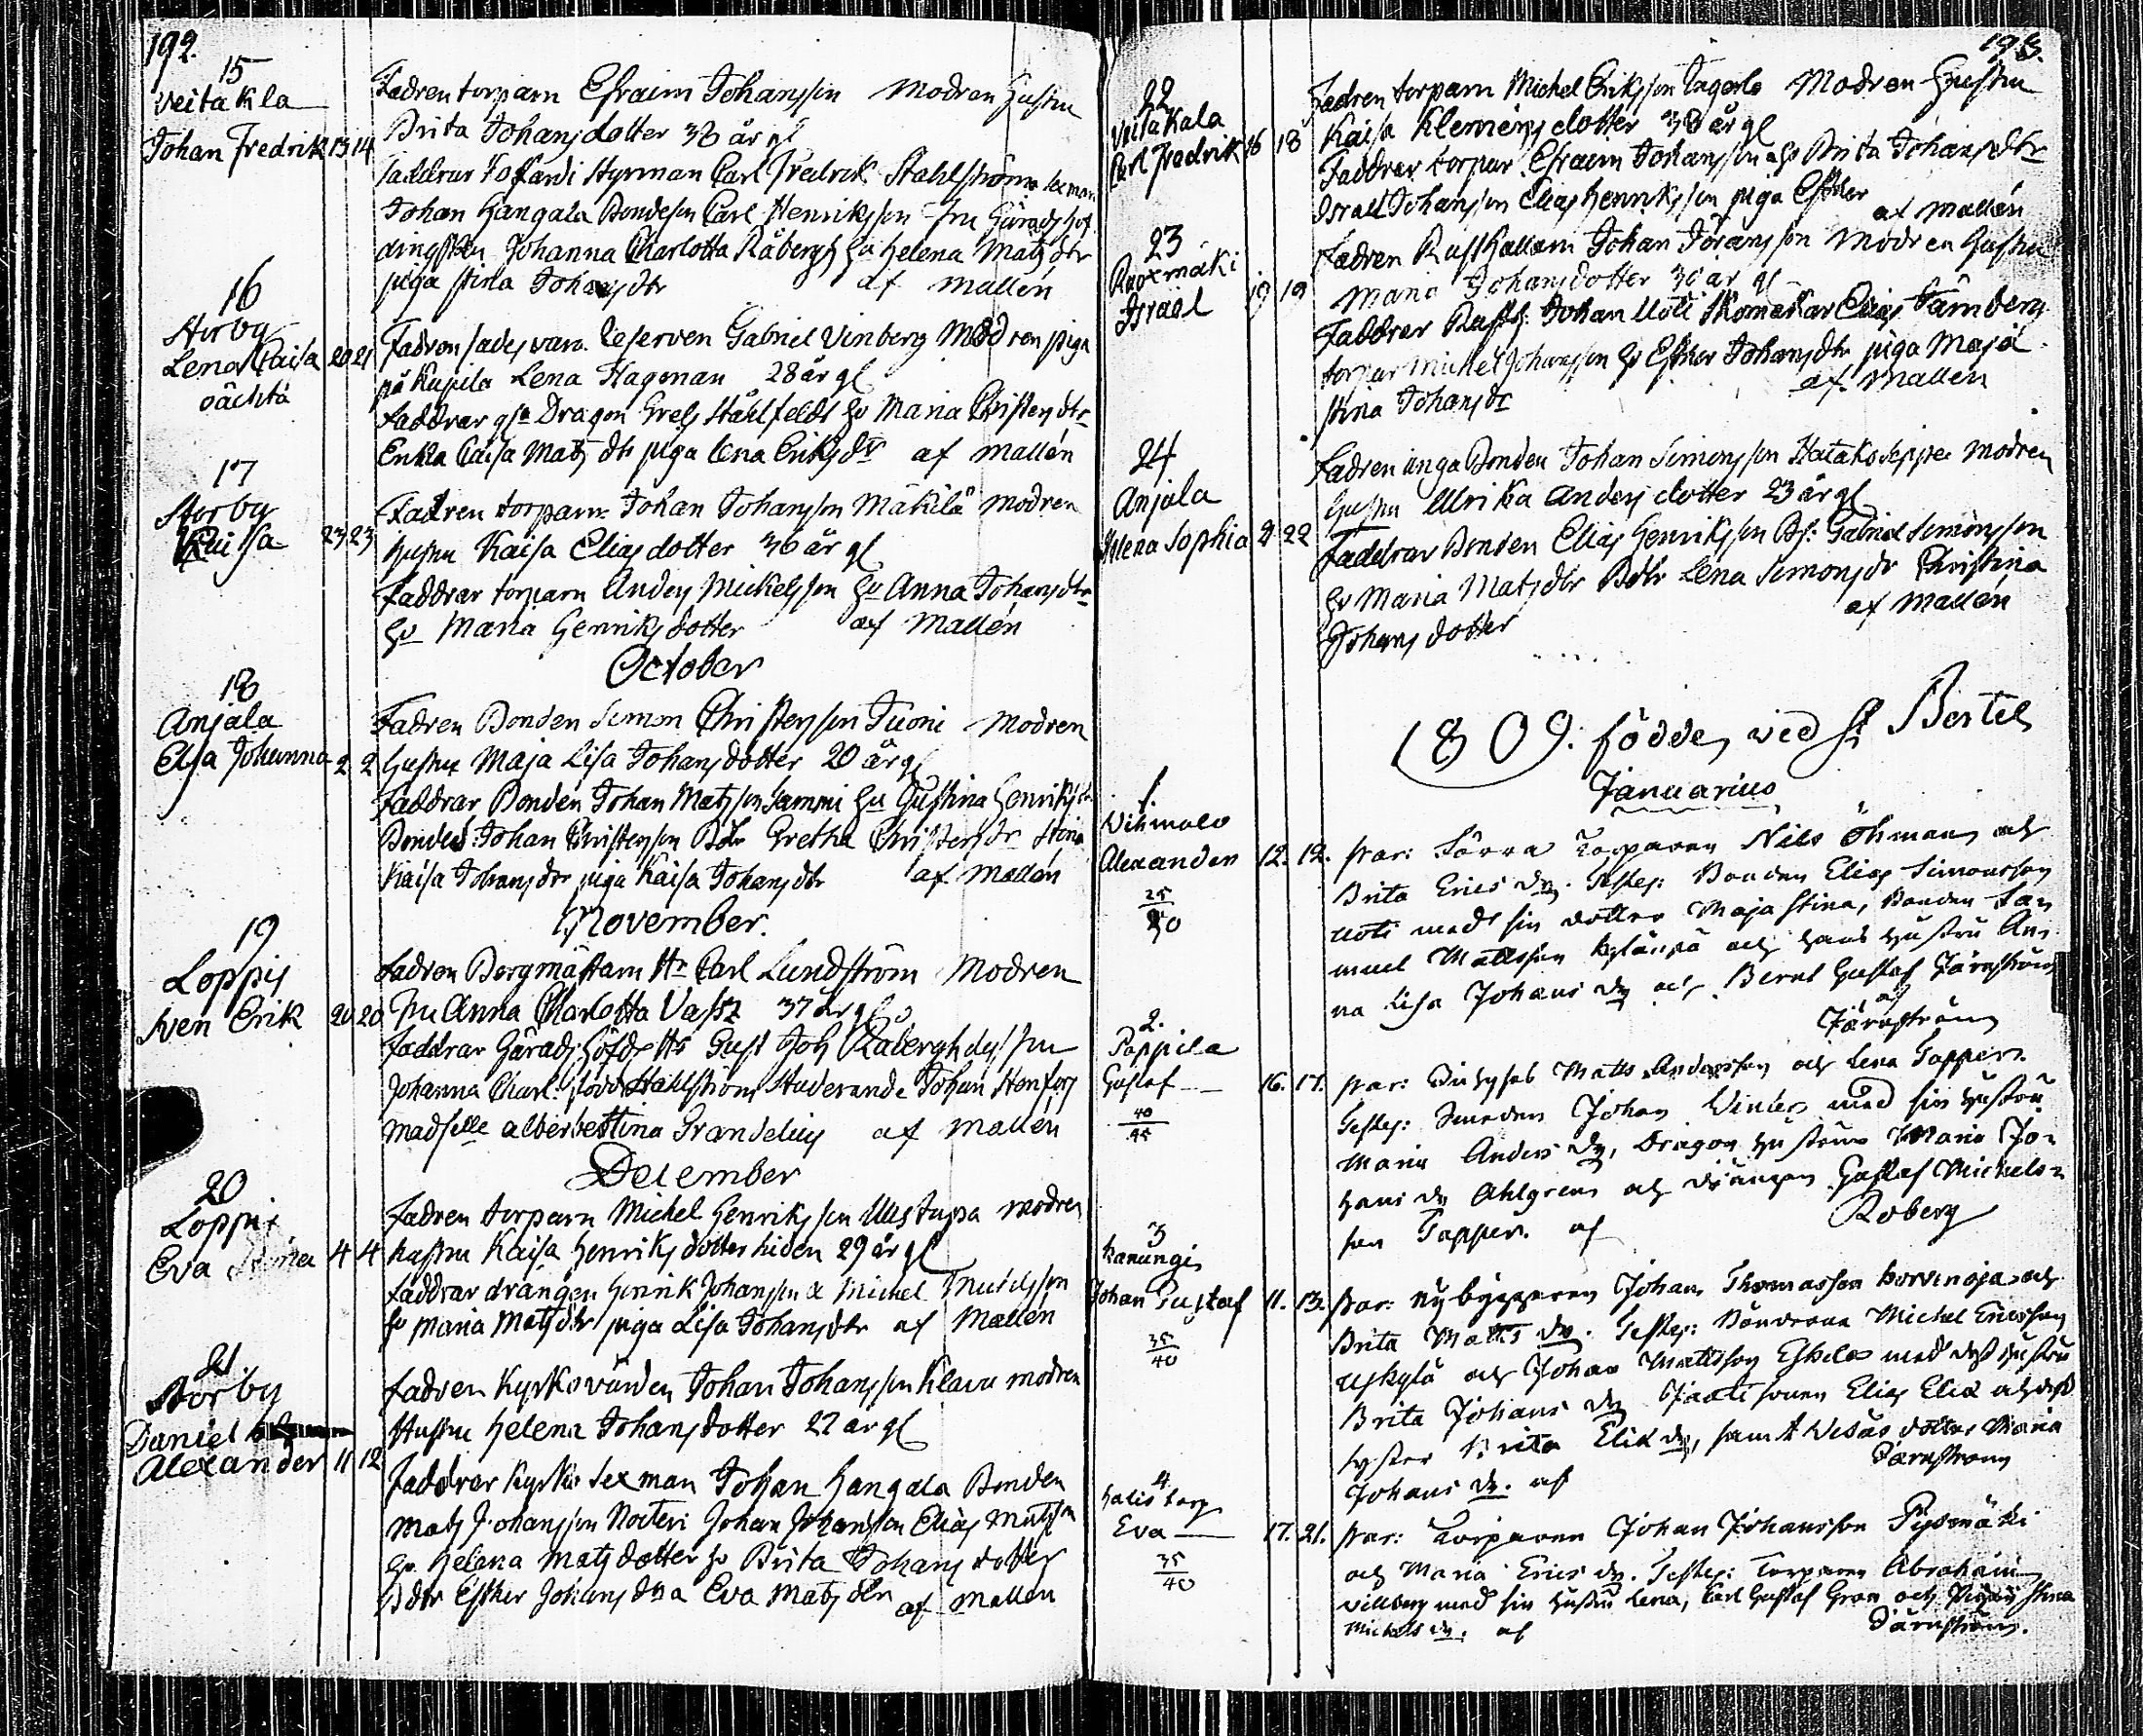 192.
15
Veitakla
Johan Fredrik 13 14
Fadren torparn Efraim Johansson Modren Hustru
Brita Johansdotter 38 år gl
faddrar Styrman Carl Fredrik Stahlström sexman
Johan Hangala Bondeson Carl Henriksson Fru Häradshöf
dingskan Johanna Charlotta Råbergh hu Helena Mats dtr
piga Stina Johansdtr af Mallén
16
Storby
Lena Caisa 20 21
oächta
Fadren sades vara Reserven Gabriel Vinberg Modren piga
på Kupila Lena Hageman 28 år gl
faddrar Dragon Grels Ståhlfeldt hu Maria Christersdtr
Enkla Caisa Mats dtr piga Lena Eriksdtr af Mallén
17
Storby
Kaisa 23 23
Fadren torparn Johan Johansson Mäkilä Modren
hustru Kaisa Eliasdotter 36 år gl
faddrar torparn Anders Mickelsson hu Anna Johansdtr
hu Maria Henriksdotter af Mallén
October
18
Anjala
Elsa Johanna 2 2
Fadren Bonden Simon Christersson Tuoni Modren
Hustru Maja Lisa Johansdotter 20 år gl
Faddrar Bonden Johan Matsson Sammi hu Justina Henriksdr
Bondes: Johan Christersson Bdtr Gretha Christersdr Stina
Kaisa Johansdtr piga Kaisa Johansdtr af Mallén
November.
19
Loppis
Sven Erik 20 20
Fadren Bergmästarn Hr Carl Lundström Modren
Fru Anna Charlotta Vasz 37 år gl
Faddrar Häradshöfd Hr Gust Joh Råbergh dess fru
Johanna Charl: Stahlström Studerande Johan Stenfors
Madselle Albertina Grandelius af Mallén
December
20
Loppis
Eva Stina 4 4
Fadren torparn Michel Henriksson Uustupa modren
hustru Kaisa Henriksdotter hiden 29 år gl
faddrar drängen Henrik Johansson & Michel
hu Maria Matsdtr piga Lisa Johansdtr af Mallén
21.
Storby
Daniel
Alexander 11 12
Fadren Kyrkovärden Johan Johansson Klavu modren
Hustru Helena Johansdotter 22 år gl
Faddrar Kyrko Sexman Johan Hangala Bonden
Mats Johansson Nouteri Johan Johansson Elias Matsson
hu Helena Matsdotter hu Brita Johansdotter
Bdtr Esther Johansdtr Eva Matsdtr af Mallén
193.
22
Veitakala
Carl Fredrik 16 18
Fadren torparn Michel Eriksson Ingerla Modren Hustru
Kaisa Klemensdotter 38 år gl
Faddrar torpar Efraim Johansson Brita Johansdtr
Israel Johansson Elias Henriksson piga Esther
af Mallén
23
Ruoxmäki
Israel 19 19
Fadren Rusthållarn Johan Jöransson Modren Hustru
Maria Johansdotter 36 år gl
Faddrar Rusth: Johan Uoti Skomakar Elias Tärnberg
torpar Michel Johansson hu Esther Johansdtr piga Maja
Stina Johansdr af Mallén
24
Anjala
Helena Sophia 21 22
Fadren unga Bonden Johan Simonsson Hatakaseppä modren
hustru Ulrika Andersdotter 23 år gl
Faddrar Bonden Elias Henriksson Bs: Gabriel Simonsson
hu Maria Matsdtr Bdtr Lena Simonsdr Christina
Johansdotter af Mallén
1809. födde, ved St Bertils
Januarius
1.
Vihmalo
Alexander 12. 12.
25
30
Par: förra Torparen Nils Öhman och
Brita Erics dr. Testes: Bonden Elias Simonsson
uoti med sin dotter Maja Stina, Bonden Sa=
muel Mattsson och hans hustru An=
na Lisa Johans dr och Bernt Gustaf Järnström
af
Järnström
2.
Pappila
Gustaf 16. 17.
40
45
Par: Matts Andersson och Lena Tapper.
Testes: Smeden Johan Winter med sin hustru
Maria Anders dr, Dragon hustrun Maria Jo=
hans dr Ahlgren och drängen Gustaf Michels=
son Tapper. af Roberg
3
Kanungi
Johan Gustaf 11. 13.
35
40
Par: nybyggaren Johan Thomasson Korvenoja och
Brita Matts dr. Testes: Bönderna Michel Ericsson
Uskylä och Johan Mattsson Eskola med dess hustru
Brita Johans dr Elias Elia och dess
syster Brita Elia dr, samt dotter Maria
Johans dr. af Järnström
4
Halistorp
Eva 17. 21.
35
40
Par: Torparen Johan Johansson Pyömäki
och Maria Erics dr. Testes: Torparen Abraham
Willberg med sin hustru Lena, Carl Gustaf Gran och Pigan Stina
Michels dr. af Järnström.